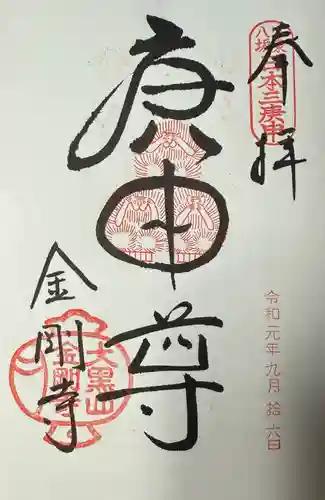 奉拝
八坂 日本三庚申
庚申尊
令和元年九月拾六日
金剛寺
大黒山
金剛寺